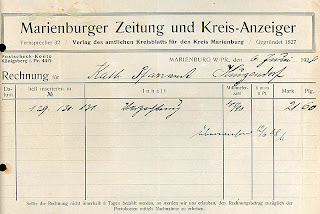 Marienburger Zeitung und Kreis-Anzeiger
Fernsprecher 32 Verlag des amtlichen Kreisblatts für den Kreis Marienburg Gegründet 1827
Postscheck-Konto
Königsberg i. Pr. 445
MARIENBURG W.PR., den 6. Juni 192
Rechnung für Kath. Pfarramt
Datum Heft inserieren in No. Inhalt Millimeterzahl Mark Pfg.
129 130 131 21 60
Sollte die Rechnung nicht innerhalb 6 Tagen bezahlt werden, so werden wir uns erlauben, den Rechnungsbetrag zuzüglich der
Portokosten mittels Nachnahme zu erheben.